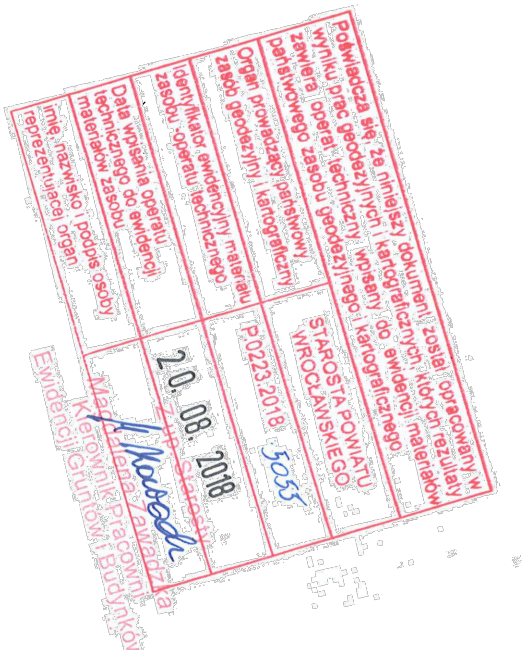 Poświadcza się, że niniejszy dokument został opracowany w
wyniku prac geodezyjnych i kartograficznych, których rezultaty
zawiera operat techniczny wpisany do ewidencji materiałów
państwowego zasobu geodezyjnego i kartograficznego
Organ prowadzący państwowy
zasób geodezyjny i kartograficzny
STAROSTA POWIATU
WROCŁAWSKIEGO
Identyfikator ewidencyjny materiału
zasobu - operatu technicznego
P.0223.2018.5055
Data wpisania operatu
technicznego do ewidencji
materiałów zasobu
20. 08. 2018
Imię, nazwisko i podpis osoby
reprezentującej organ
Starosty
Zawadzka
Kierownik Pracowni
Ewidencji Gruntów i Budynków